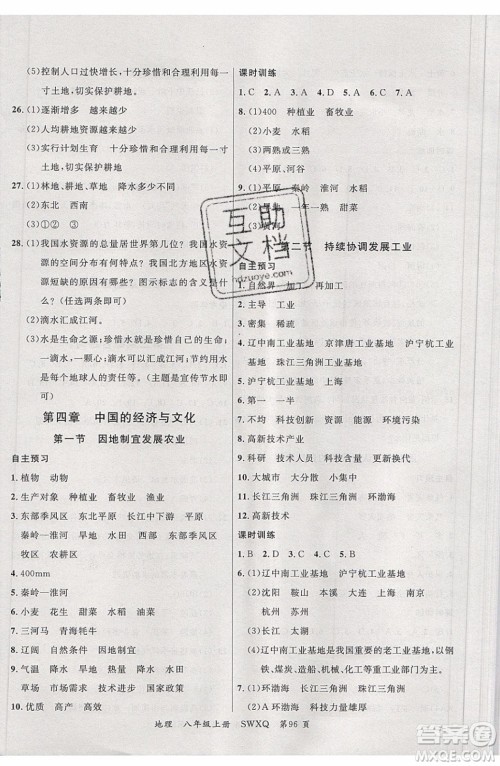 (5)控制人口过快增长，十分珍惜和合理利用每一
寸土地，切实保护耕地。
26. (1)逐渐增多　越来越少
(2)人均耕地资源越来越少
(3)实行计划生育　十分珍惜和合理利用每一寸
土地，切实保护耕地
27. (1)林地、耕地、草地　降水越来越少
(2)东北　西南
(3)①　②　③
28. (1)我国水资源的总量居世界第几位？我国水资
源的空间分布有何特点？我国水资源
短缺的原因有哪些？图示标志的含义是什么？
(答案合理即可)
(2)滴水汇成江河。
(3)水是生命的源泉，珍惜水就是珍惜自己的生
命；一滴水，一颗心；滴水可以汇成江河，节约用水
是每个地球人的责任。(主旨宣传节水即可)
第四章　中国的经济与文化
第一节　因地制宜发展农业
自主预习
1. 植物　动物
2. 生产对象　种植业　畜牧业　渔业　林业
3. 东部季风区　东部季风区　东部季风区
秦岭—淮河　秦岭—淮河　东部季风区
牧区　农耕区
4. 400mm
5. 秦岭—淮河
6. 小麦　花生　甜菜　水稻　油菜　甘蔗
7. 三河马　青海牦牛
8. 辽阔　自然条件　因地制宜
9. 气温　降水　地形　降水　地形　水源
草场　市场需求　国家政策　科技发展
10. 优质　高产　高效
课时训练
1. C　2. A　3. D　4. C　5. A　6. C　7. A
8. (1)400　种植业　畜牧业
(2)小麦　水稻
(3)两熟或三熟
(4)平原、河谷
9. (1)平原　秦岭　淮河　水稻
一年一熟　甜菜
第二节　持续协调发展工业
自主预习
1. 自然界　加工　再加工
2. 主导　工业
3. 密集　稀疏
4. 辽中南工业基地　京津唐工业基地　沪宁杭工
业基地　珠江三角洲工业基地
5. 沪宁杭工业基地　上海
6. 第一　一半
7. 不均　科技创新　资源　环境　可持续
8. 高新技术
9. 科研　技术人员　技术　快　科技
10. 大城市　大分散　小集中
11. 长江三角洲　珠江三角洲　环渤海
12. 高新技术
课时训练
1. B　2. D　3. C　4. A　5. B
6. (1)辽中南工业基地　沪宁杭工业基地
(2)沈阳　鞍山　本溪　大连　上海　南京
杭州　苏州
(3)长江　珠江
(4)辽中南工业基地是我国最著名的重工业基地，以钢
铁、煤炭、造船、机械等工业为主。
7. (1)环渤海　长江三角洲　珠江三角洲
(2)环渤海　科技力量雄厚
地理　八年级上册　SWXQ　第96页
互助
文档
hdzuoye.com